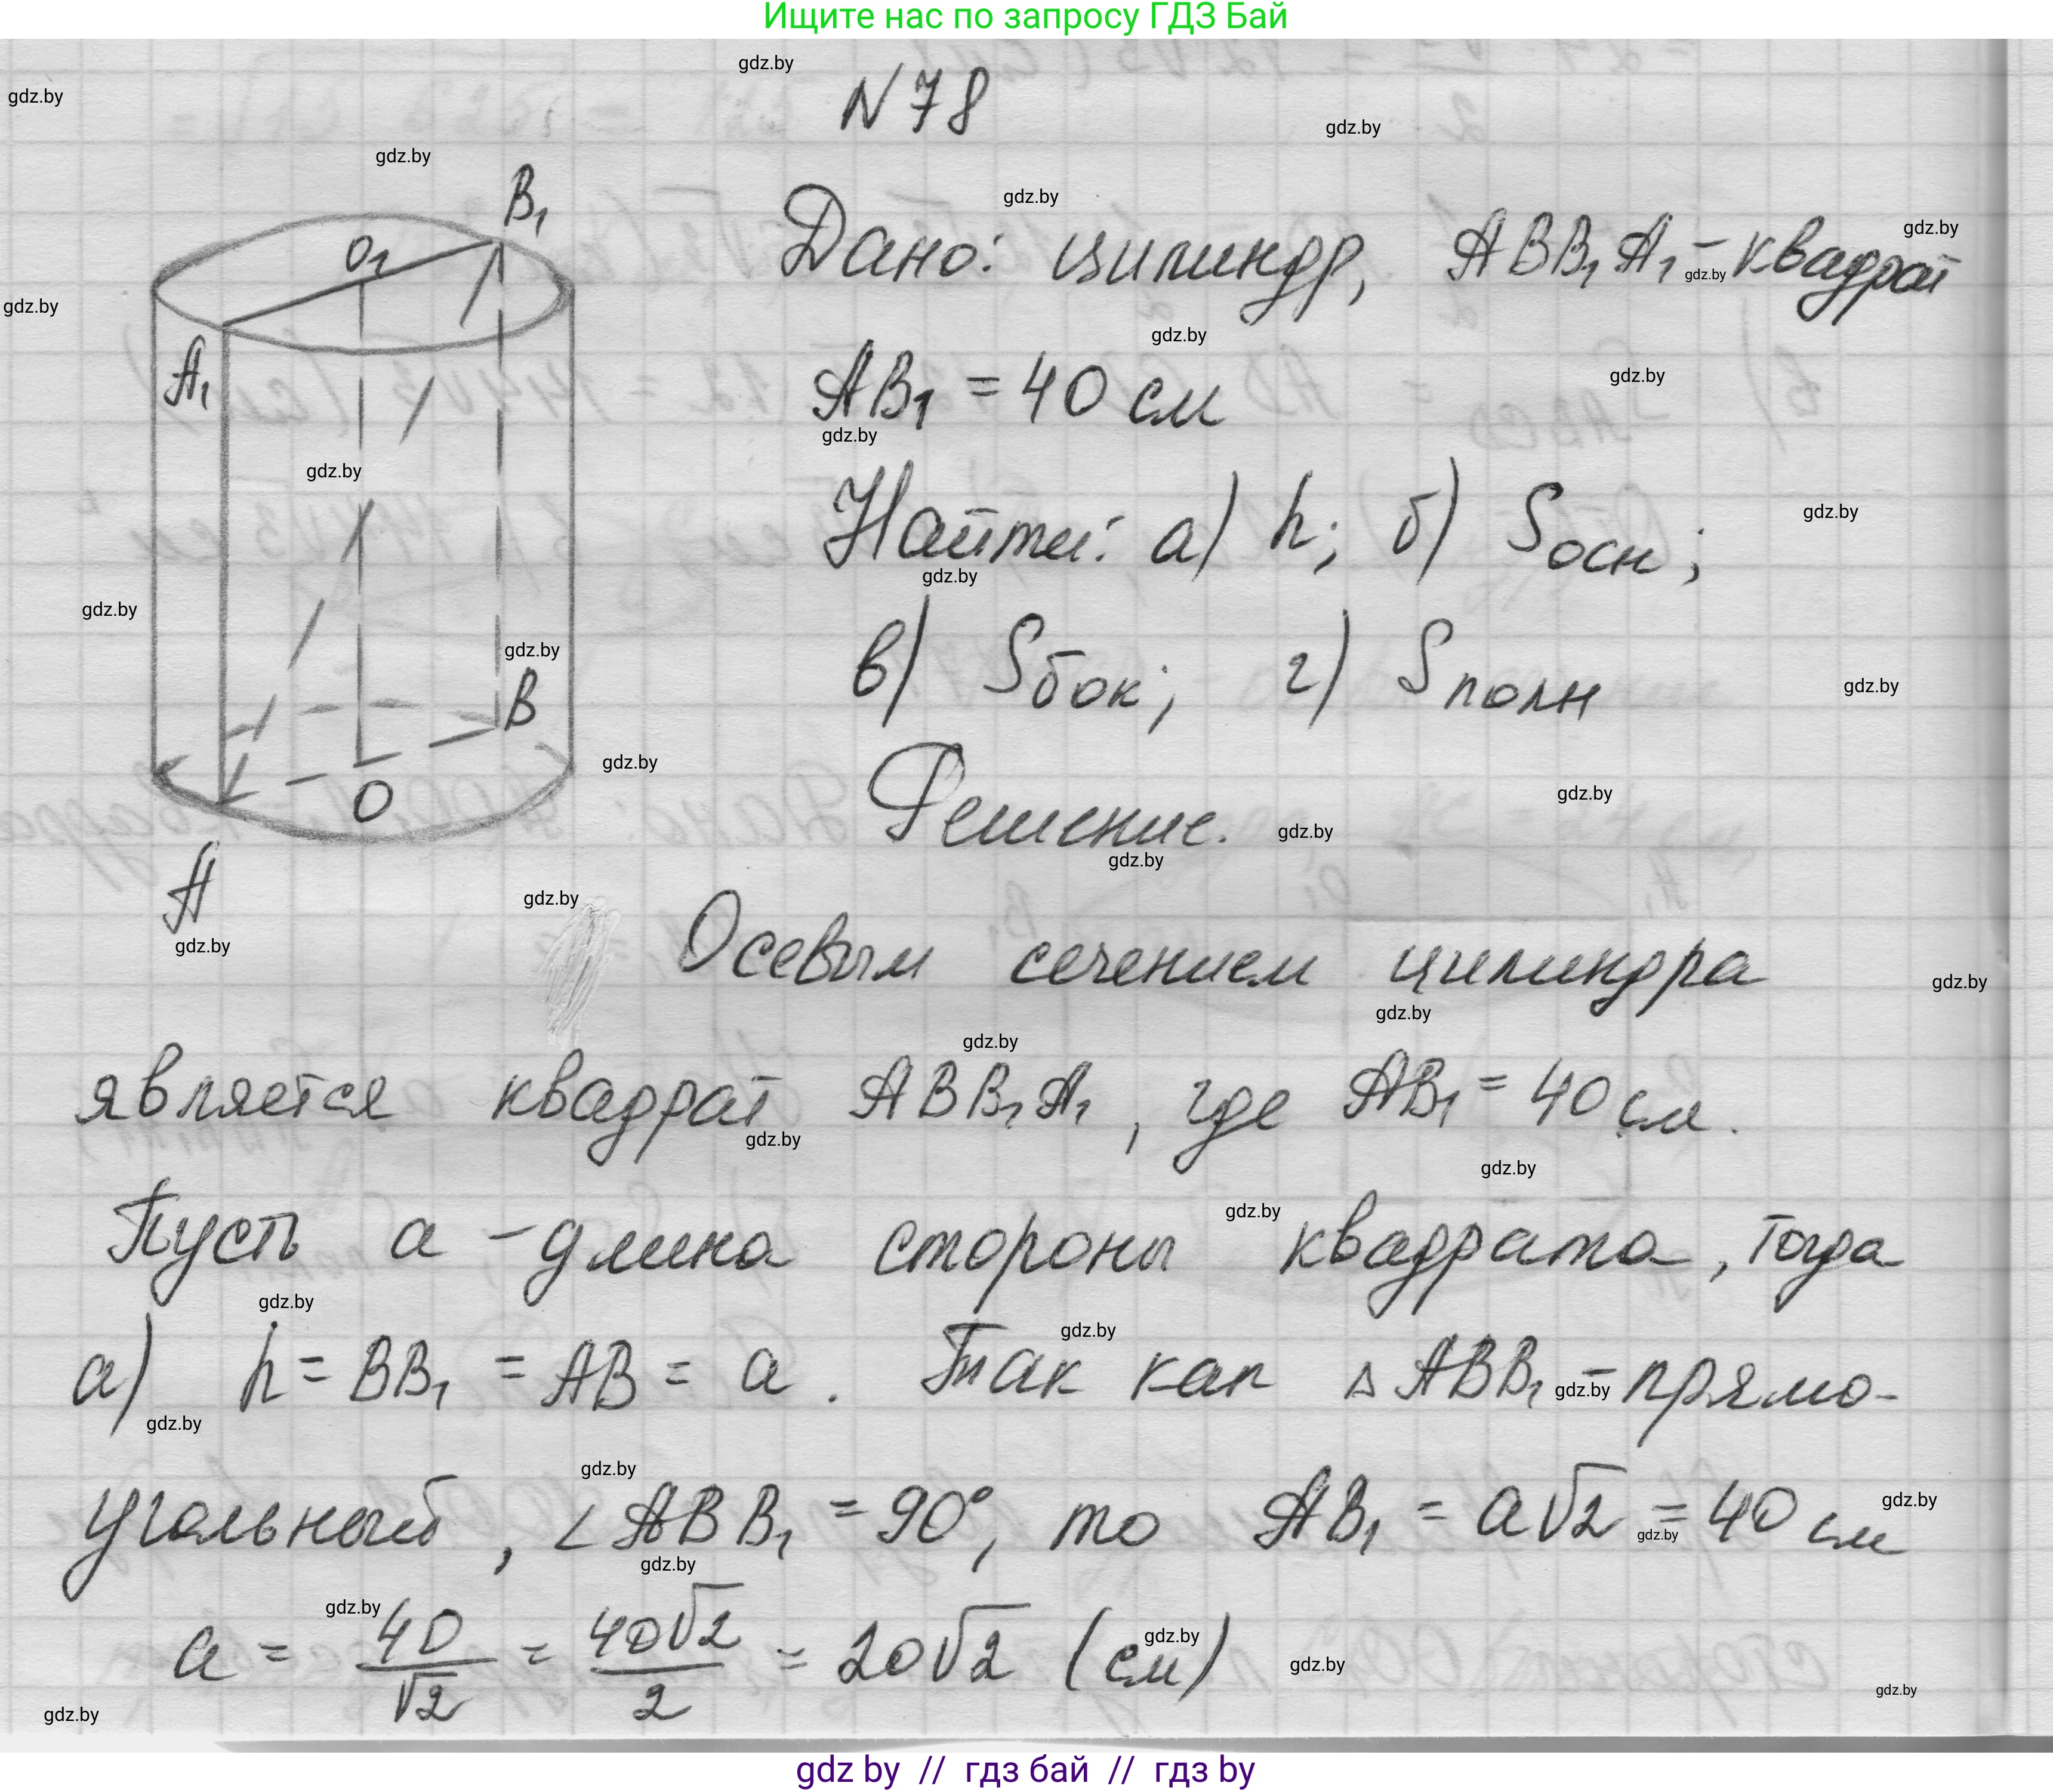 Ищите нас по запросу ГДЗ Бай
N 78
Дано: цилиндр, ABB₁A₁ - квадрат
AB₁ = 40 см
Найти: а) h; б) Sосн;
в) Sбок; г) Sполн
Решение.
B₁
O₁
A₁
B
O
A
Осевым сечением цилиндра
является квадрат ABB₁A₁, где AB₁ = 40 см.
Пусть a - длина стороны квадрата, тогда
а) h = BB₁ = AB = a. Так как △ABB₁ - прямо-
угольный, ∠ABB₁ = 90°, то AB₁ = a√2 = 40 см
a = 40/√2 = 40√2/2 = 20√2 (см)
gdz.by
gdz by // гдз бай // гдз by